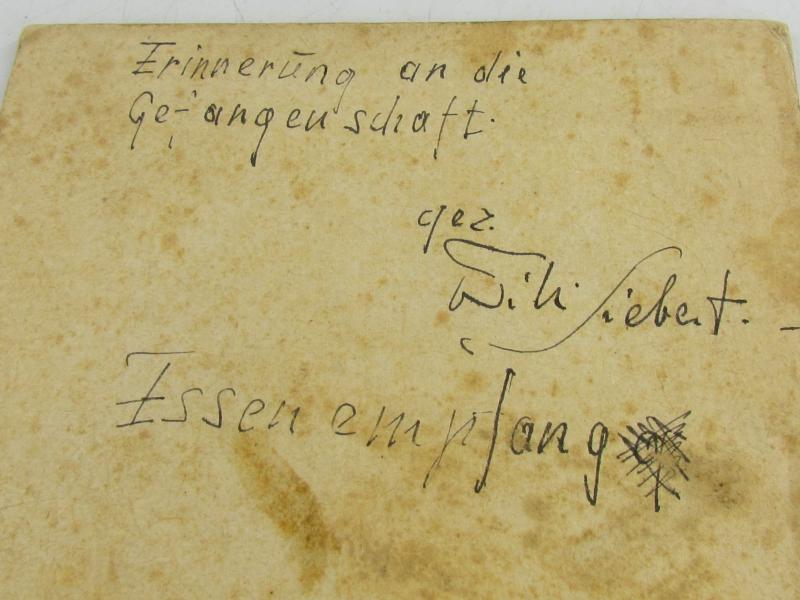 Erinnerung an die
Gefangenschaft.
gez.
Willi Siebert.
Essen empfang